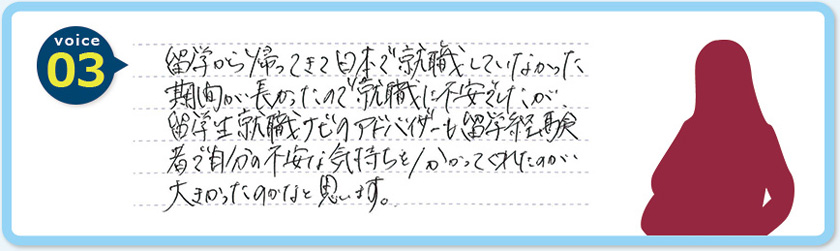 voice
03
留学から帰ってきて日本で就職していなかった
期間が長かったので就職に不安でしたが、
留学生就職ナビのアドバイザーも留学経験
者で自分の不安な気持ちを分かってくれたのが
大きかったのかなと思います。